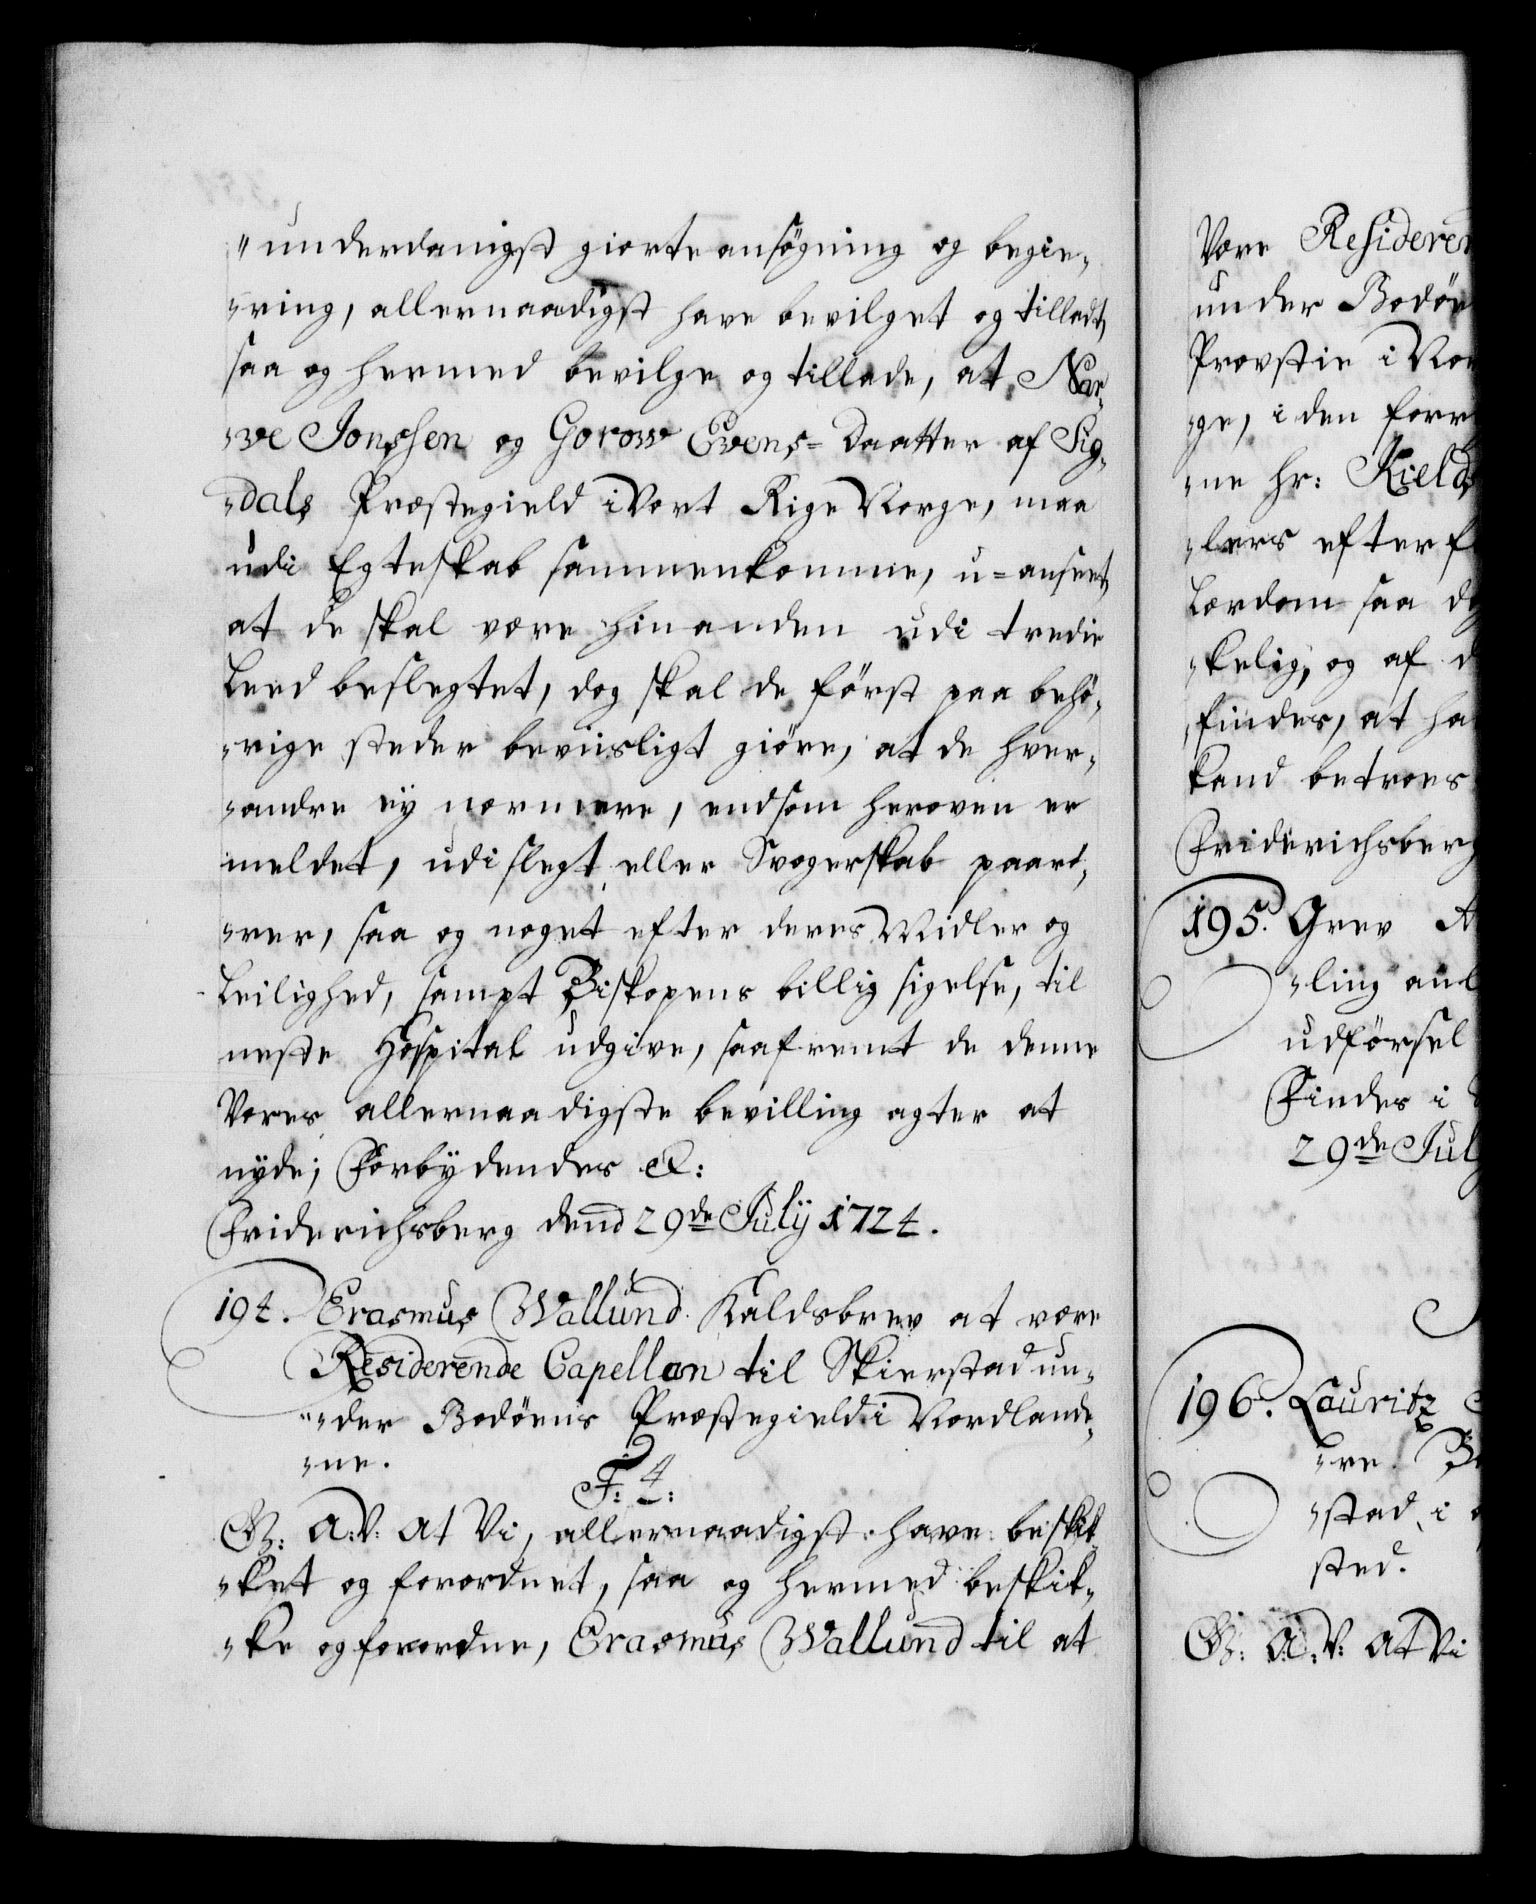 "underdanigst giorte ansøgning og begie„
„ring, allernaadigst have bevilget og tilladt,
saa og hermed bevilge og tillade, at Nar„
„ve Jonssen og Gorow Evens=Daatter af Sig„
„dals Præstegield i Vort Rige Norge, maa
udi Egteskab sammenkomme, u=anseet,
at de skal være hinanden udi tredie
Leed beslegtet, dog skal de først paa behö„
„rige steder beviisligt giöre, at de hver„
„andre ey nærmere, end som heroven er
meldet, udi slegt eller Svogerskab paarö„
„rer, saa og noget efter deres Midler og
Leilighed, sampt Biskopens billig sigelse, til
neste Hospital udgive, saafremt de denne
Vores allernaadigste bevilling agter at
nyde; Forbydendes &:
Friderichsberg dend 29de Julij 1724.
194. Erasmus Wallund Kaldsbrev at være
Residerende Capellan til Skierstad un„
„der Bodöens Præstegield i Nordlande„
„ne.
F: 4:
G: A:V: At Vi, allernaadigst have beskik„
„ket og forordnet, saa og hermed beskik„
„ke og forordne, Erasmus Wallund til at
Være Residere
under Bodöe
Provstie i Nor
„ge, i den forr
„ne Hr: Kield
„lers efterf
Lærdom saa
„kelig, og af d
„findes, at ha
kand betroes
Friderichsberg
195. Grev
„ling anl
udförsel
Findes i
29de July
196. Lauritz
„re
„stad, i
sted.
G: A:V: At Vi